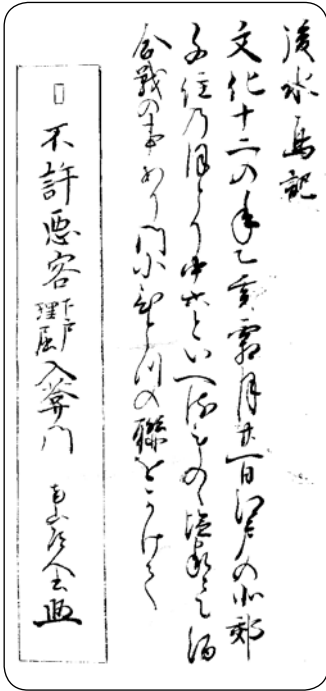 後水鳥記
文化十二のとし乙亥霜月廿一日江戸の北郊
千住のほとり中六といへるものゝ隠家にて酒
合戦の事あり門にひとつの聯をかけて
□ 不許悪客下戸理屈入菴門